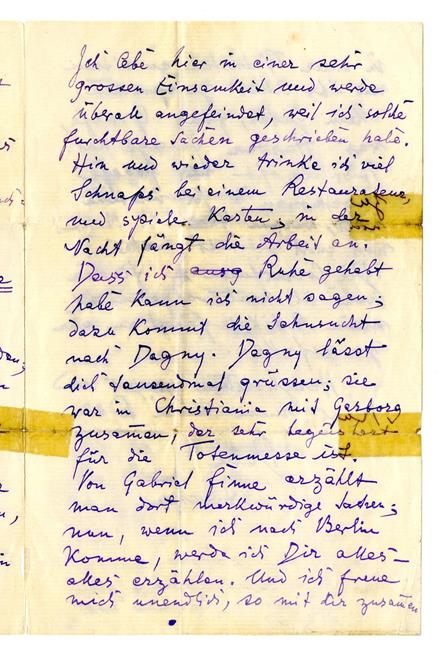 Ich lebe hier in einer sehr
grossen Einsamkeit und werde
überall angefeindet, weil ich solche
furchtbare Sachen geschrieben habe.
Hin und wieder trinke ich viel
Schnaps bei einem
und spiele Karten; in der
Nacht fängt die Arbeit an.
Dass ich Ruhe gehabt
habe kann ich nicht sagen;
dazu kommt die Sehnsucht
nach Dagny. Dagny lässt
dich tausendmal grüssen; sie
war in Christiania mit Garborg
zusamen, der sehr
für die Totenmesse ist.
Von Gabriel Finne erzählt
man dort merkwürdige Sachen;
nun, wenn ich nach Berlin
komme, werde ich Dir alles –
alles erzählen. Und ich freue
mich unendlich, so mit dir zusamen